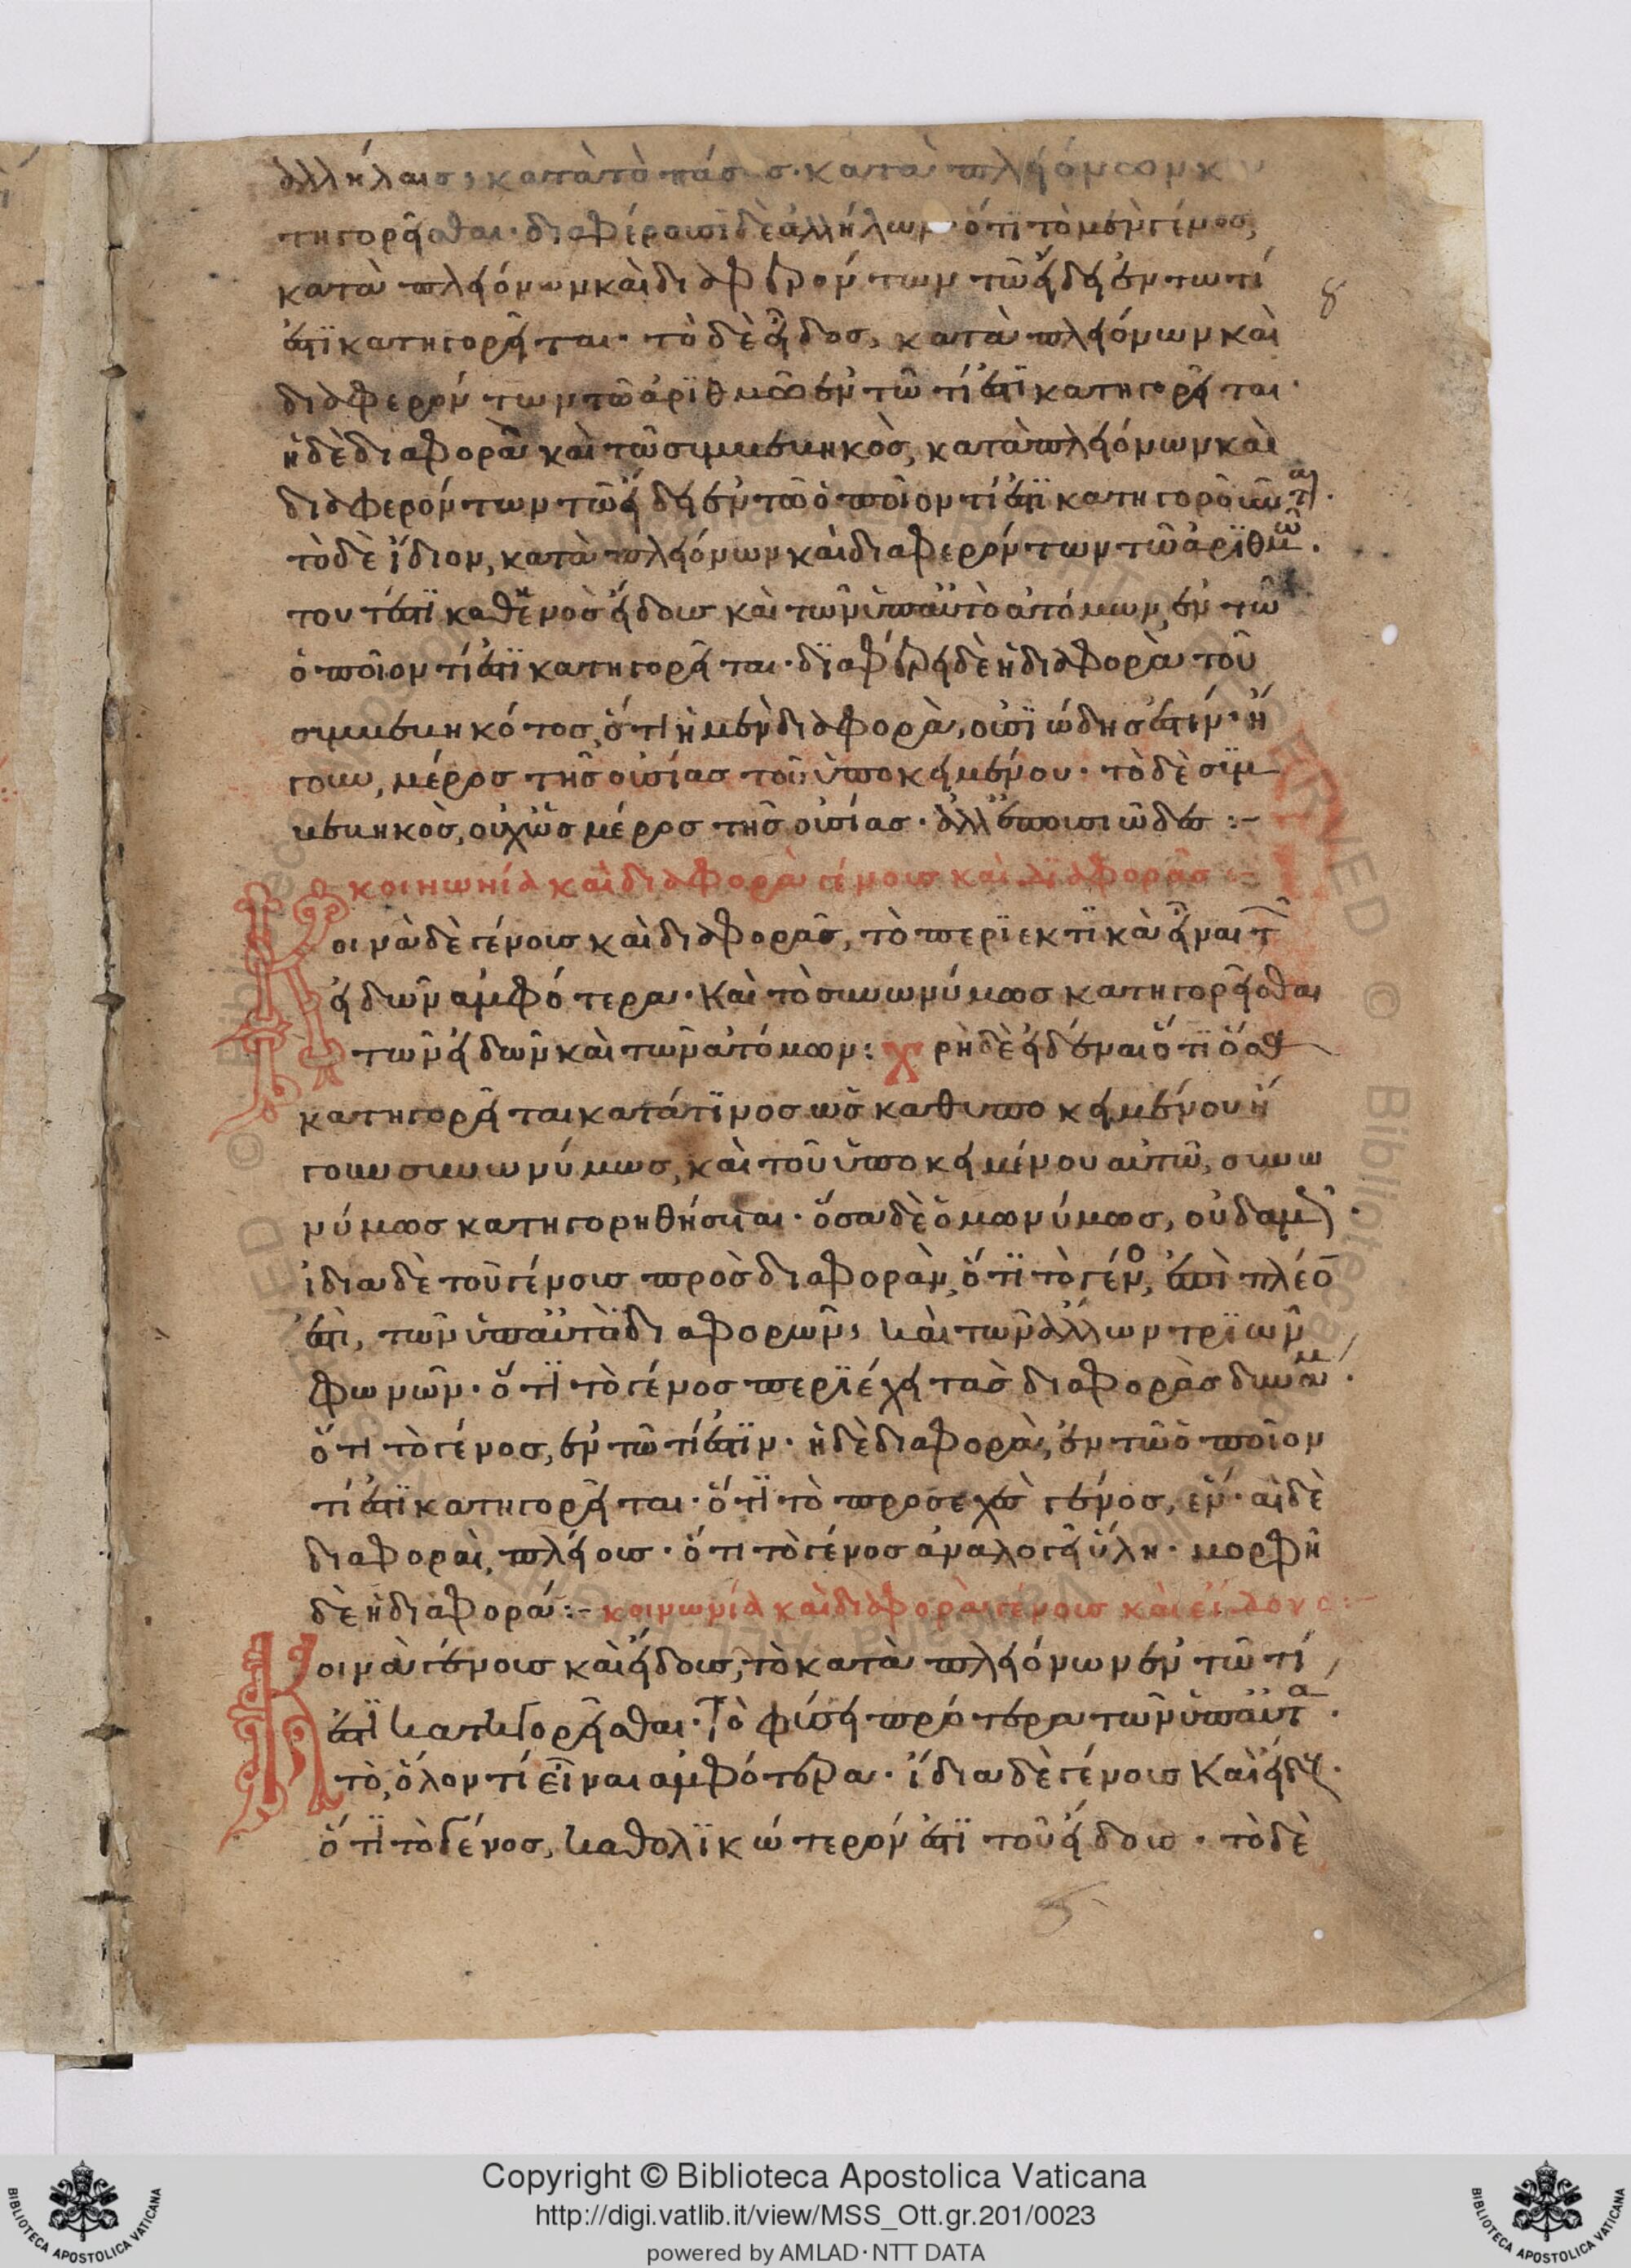 ἀλλήλαις, κατὰ τὸ πάσας κατὰ πλειόνων κα
τηγορεῖσθαι· διαφέρουσι δὲ ἀλλήλων· ὅτι τὸ μὲν γένος,
κατὰ πλειόνων καὶ διαφερόντων τῶ εἴδει ἐν τω τί
ἐστϊ κατηγορεῖται· τὸ δὲ εἶδος, κατὰ πλειόνων καὶ
διαφερόντων τῶ ἀρϊθμῶ ἐν τῶ τί ἐστϊ κατηγορεῖται·
ἡ δὲ διαφορὰ καὶ τὸ συμβεβηκὸς, κατὰ πλειόνων καὶ
διαφερόντων τῶ εἴδει ἐν τῶ ὁποῖον τί ἐστϊ κατηγοροῦνται·
τὸ δὲ ἴδιον, κατὰ πλειόνων καὶ διαφερόντων τῶ ἀρϊθμῶ·
τουτέστϊ καθ' ἑνὸς εἴδους καὶ τῶν ὑπ' αὐτὸ ἀτόμων, ἐν τῶ
ὁποῖον τί ἐστϊ κατηγορεῖται· δϊαφέρει δὲ ἡ διαφορὰ τοῦ
συμβεβηκότος, ὅτι ἡ μὲν διαφορὰ, οὐσϊώδης ἐστίν· ἤ
γουν, μέρος τῆς οὐσίας τοῦ ὑποκειμένου· τὸ δὲ συμ
βεβηκὸς, οὐχ' ὡς μέρος τῆς οὐσίας· ἀλλ' ἐπουσιῶδες :-
κοινωνία καὶ διαφορὰ γένους καὶ διαφορᾶς :-
Κοινὰ δὲ γένους καὶ διαφορᾶς, τὸ περϊεκτϊκὰ εἶναι τῶν
εἰδῶν ἀμφότερα· Καὶ τὸ συνωνύμως κατηγορεῖσθαι
τῶν εἰδῶν καὶ τῶν ἀτόμων : χρὴ δὲ εἰδέναι ὅτϊ ὅσα
κατηγορεῖται κατά τϊνος ὡς καθ' ὑποκειμένου ἤ
γουν συνωνύμως, καὶ τοῦ ὑποκειμένου αὐτῶ, συνω
νύμως κατηγορηθήσεται· ὅσα δὲ ὁμωνύμως, οὐδαμῶς·
ἴδια δὲ τοῦ γένους πρὸς διαφορὰν, ὅτϊ τὸ γένος, ἐπὶ πλέον
ἐστὶ, τῶν ὑπ' αὐτὸ διαφορῶν, καὶ τῶν ἄλλων τρϊῶν
φωνῶν· ὅτϊ τὸ γένος περϊέχει τὰς διαφορὰς δυνάμει·
ὅτι τὸ γένος, ἐν τῶ τί ἐστϊν· ἡ δὲ διαφορὰ, ἐν τῶ ὁποῖον
τί ἐστϊ κατηγορεῖται· ὅτϊ τὸ προσεχὲς γένος, ἕν· αἱ δὲ
διαφοραὶ, πλείους· ὅτι τὸ γένος ἀναλογεῖ ὕλη· μορφῆ
δὲ ἡ διαφορά :- κοινωνία καὶ διαφορὰ γένους καὶ εἴδους :-
Κοινὰ γένους καὶ εἴδους, τὸ κατὰ πλειόνων ἐν τῶ τί
ἐστϊ κατηγορεῖσθαι· Τὸ φύσει πρότερα τῶν ὑπ' αὐτά·
τὸ, ὅλον τί εἶναι ἀμφότερα· ἴδια δὲ γένους Καὶ εἴδους·
ὅτϊ τὸ γένος, καθολϊκώτερόν ἐστϊ τοῦ εἴδους· τὸ δὲ
Copyright © Biblioteca Apostolica Vaticana
http://digi.vatlib.it/view/MSS_Ott.gr.201/0023
powered by AMLAD·NTT DATA
BIBLIOTECA APOSTOLICA VATICANA
BIBLIOTECA APOSTOLICA VATICANA